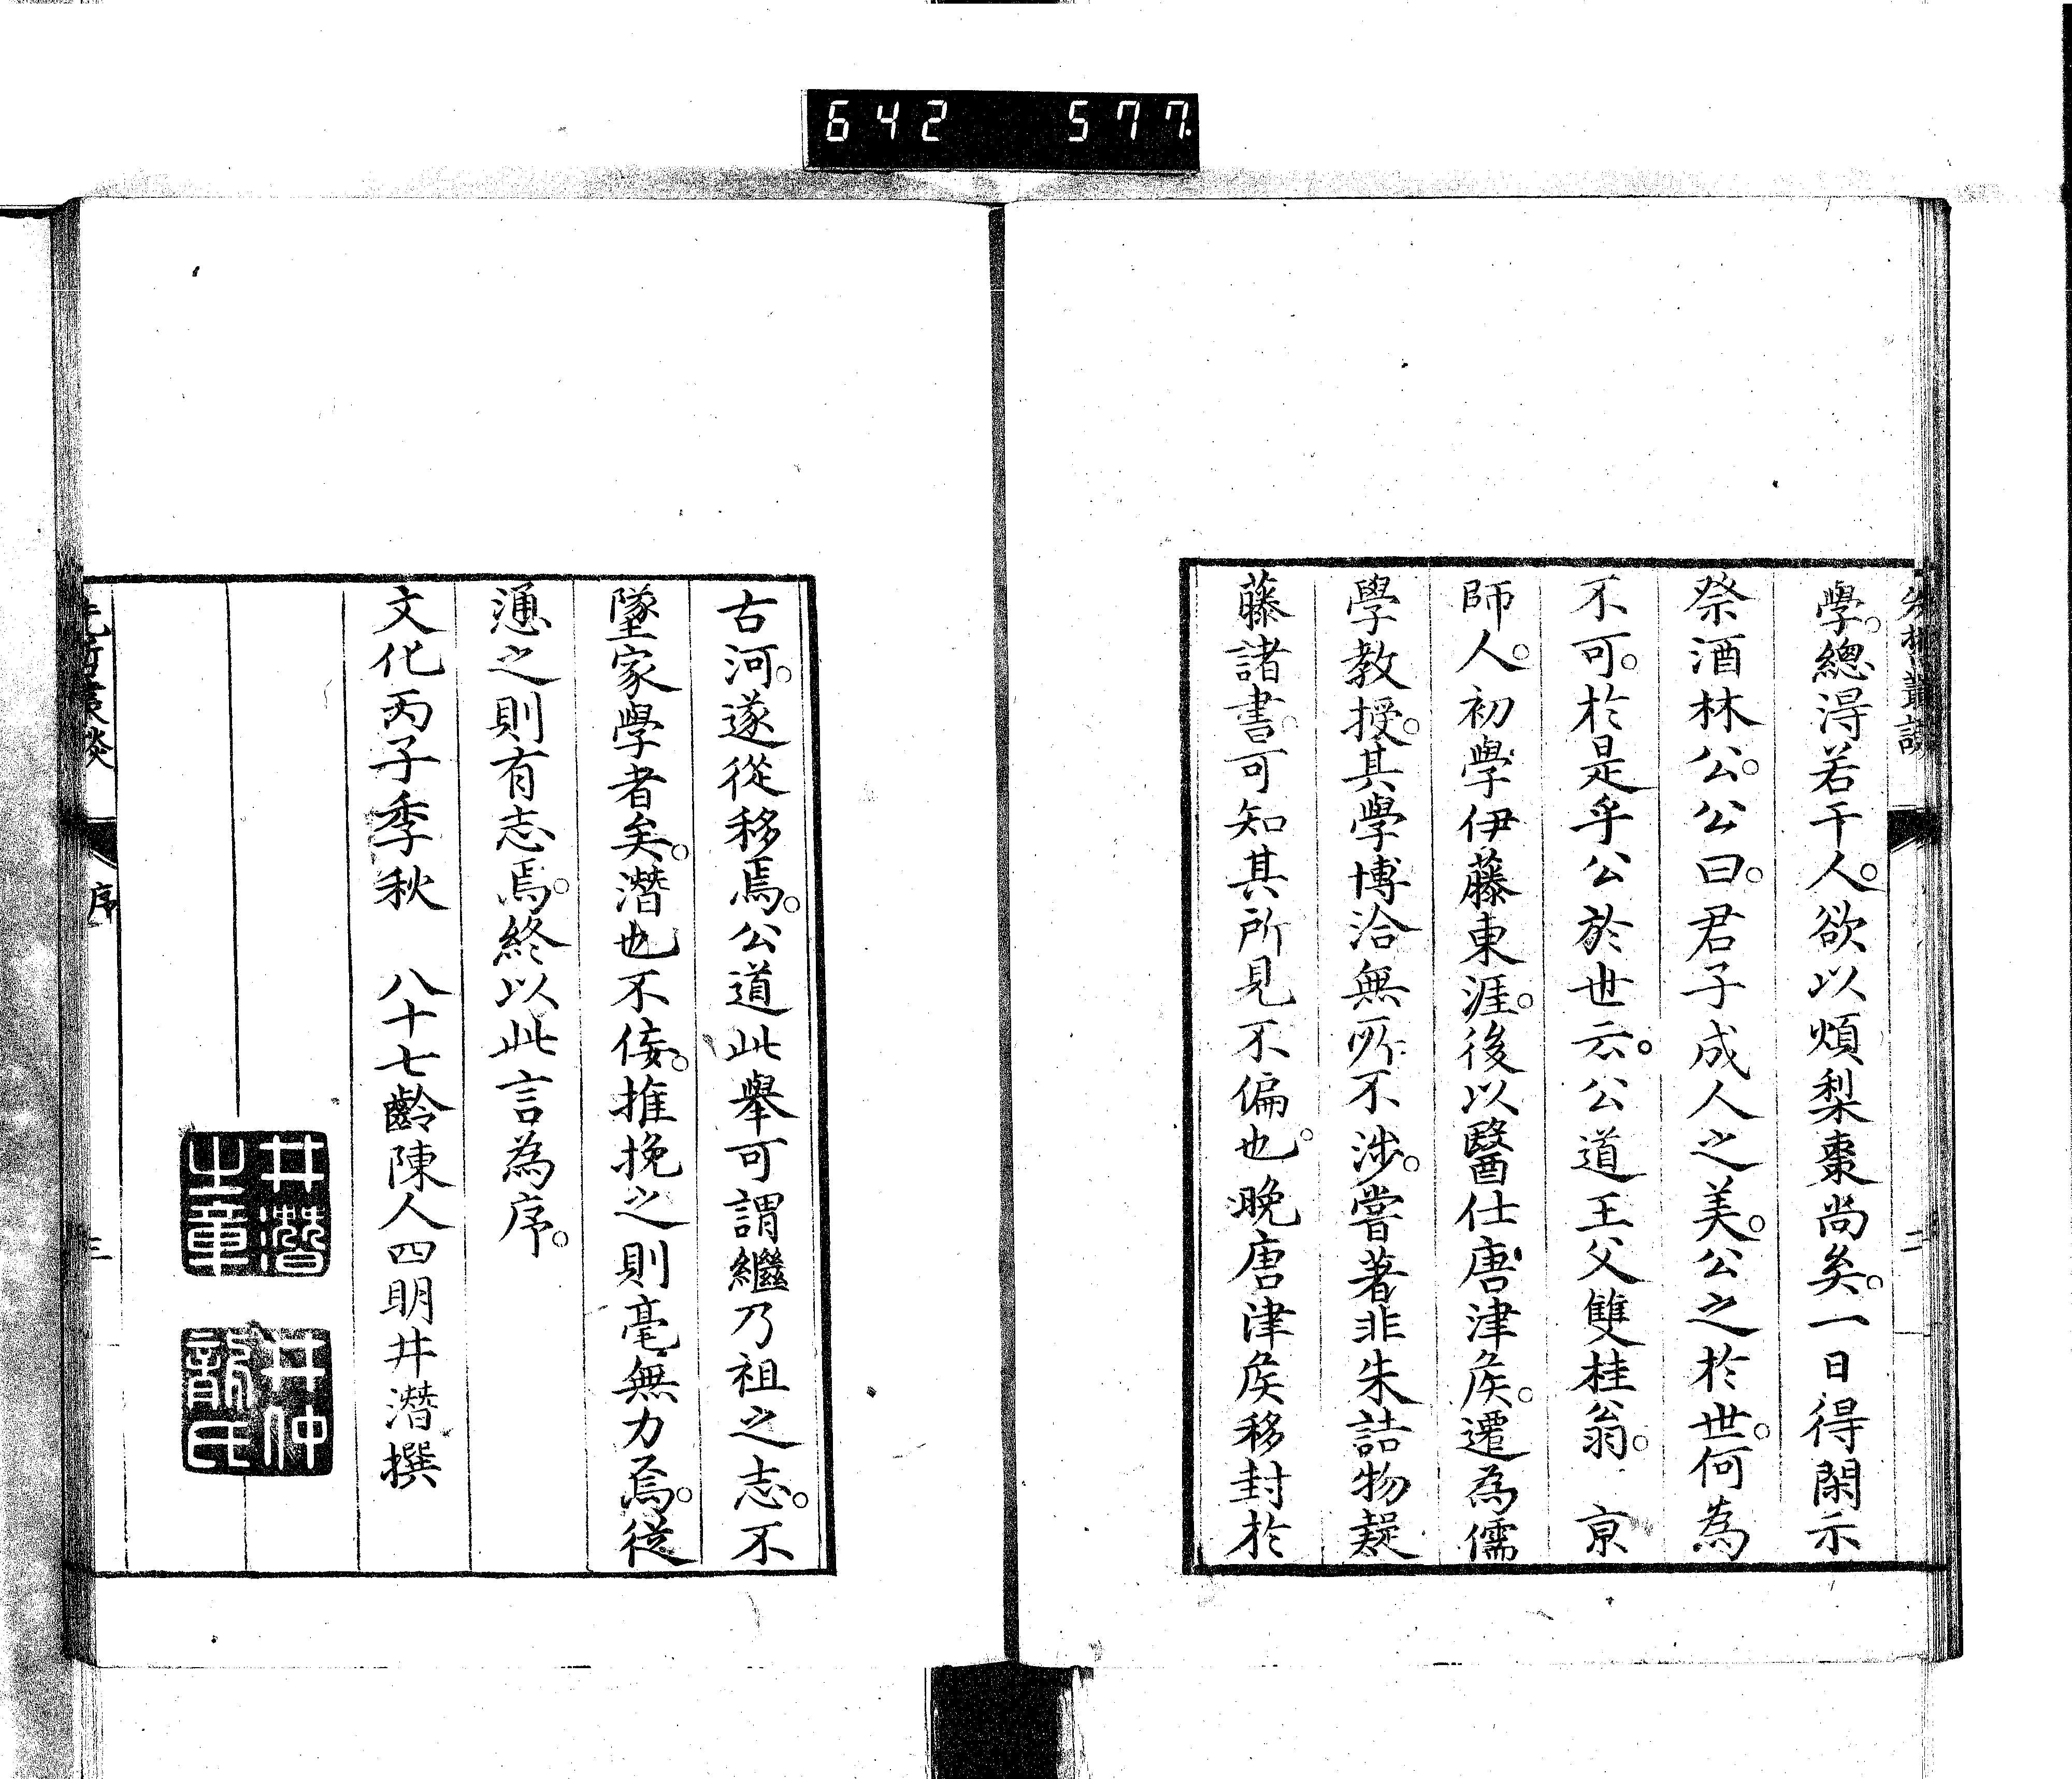 642 577
先哲叢談
二
學。總得若干人。欲以煩梨棗尚矣。一日得閑示
祭酒林公。公曰。君子成人之美。公之於世。何為
不可。於是乎公於世云。公道王父雙桂翁。京
師人。初學伊藤東涯。後以醫仕唐津矦。遷為儒
學教授。其學博洽無所不涉。嘗著非朱詰物疑
藤諸書。可知其所見不偏也。晚唐津矦移封於
古河。遂從移焉。公道此舉可謂繼乃祖之志。不
墜家學者矣。潛也不佞。推挽之則毫無力焉。從
慂之則有志焉。終以此言為序。
文化丙子季秋 八十七齡陳人四明井潛撰
井潛
井仲
龍氏
先哲叢談
序
三